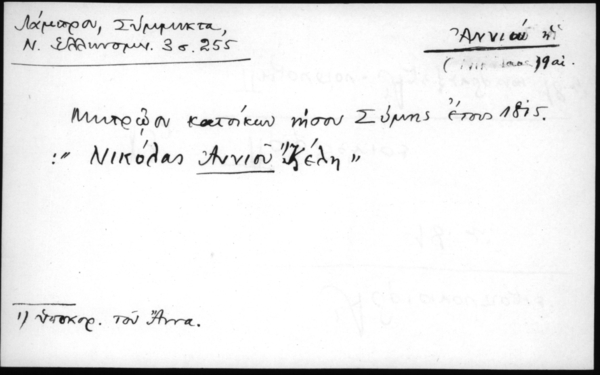 Λάμπρου, Σύμμικτα,
Ν. Ελληνομν. 3 σ. 255
Ἀννιοῦ
19 αἰ.
Μητρῷον κατοίκων νήσου Σύμης ἔτους 1815.
:" Νικόλας Ἀννιοῦ Κέλη"
1) ὑποκορ. τοῦ Ἄννα.